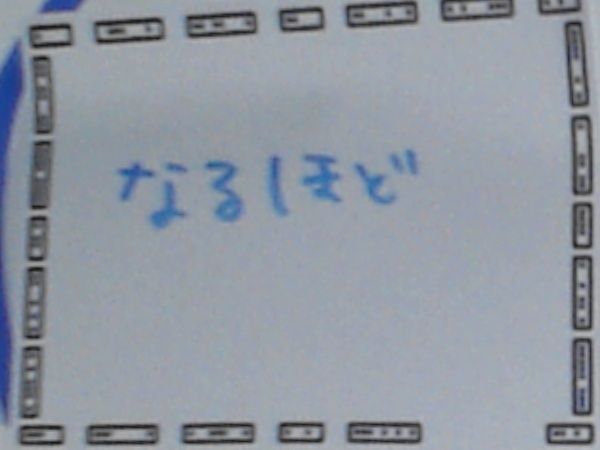 なるほど